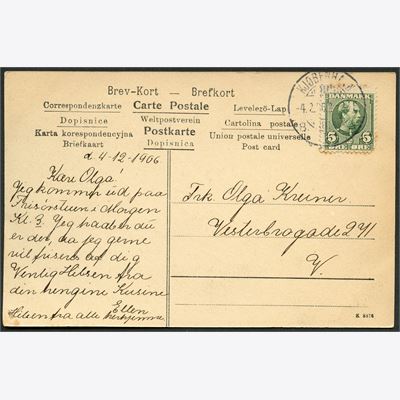 Brev-Kort — Brefkort
Correspondenzkarte Carte Postale Levelező-Lap
Dopisnice Weltpostverein Cartolina postale
Karta korespondencyjna Postkarte Union postale universelle
Briefkaart Dopisnica Post card
KJØBENHAVN
DANMARK
5 5
ØRE ØRE
d. 4-12-1906
Kære Olga!
Jeg kommer ud paa
Frisørstuen i Morgen
Kl. 3. Jeg haaber du
er der, da jeg gerne
vil friseres af dig
Venlig Hilsen fra
din hengivne Kusine
Ellen
Hilsen fra alle herhjemme
Frk Olga Kreiner
Vesterbrogade 271
V.